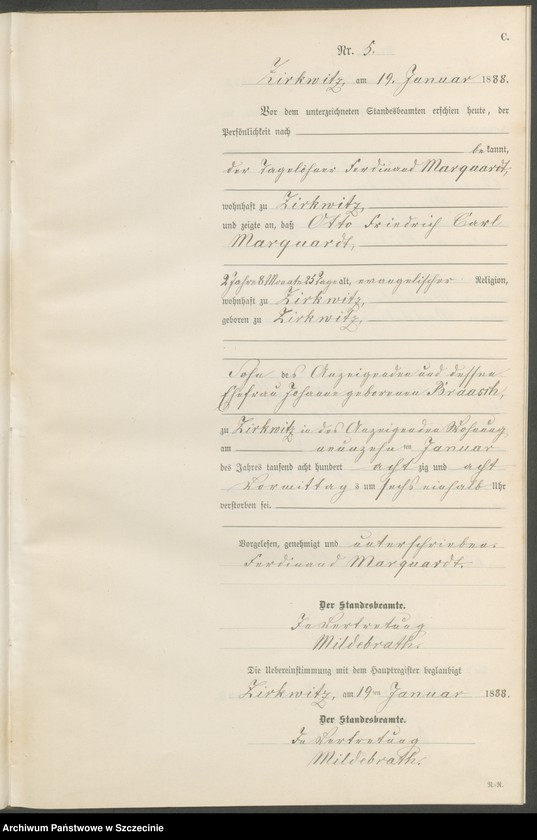 C.
Nr. 5.
Zirkwitz, am 19. Januar 1888.
Vor dem unterzeichneten Standesbeamten erschien heute, der
Persönlichkeit nach
bekannt,
der Tagelöhner Ferdinand Marquardt,
wohnhaft zu Zirkwitz,
und zeigte an, daß Otto Friedrich Carl
Marquardt,
2 Jahre 8 Monate 25 Tage alt, evangelischer Religion,
wohnhaft zu Zirkwitz,
geboren zu Zirkwitz,
Sohn des Anzeigenden und dessen
Ehefrau Johanne geborenen Braasch,
zu Zirkwitz in des Anzeigenden Wohnung
am neunzehnten Januar
des Jahres tausend acht hundert achtzig und acht
Vormittags um sechs einhalb Uhr
verstorben sei.
Vorgelesen, genehmigt und unterschrieben
Ferdinand Marquardt.
Der Standesbeamte.
In Vertretung
Mildebrath.
Die Uebereinstimmung mit dem Hauptregister beglaubigt
Zirkwitz, am 19ten Januar 1888.
Der Standesbeamte.
In Vertretung
Mildebrath.
R.-R.
Archiwum Państwowe w Szczecinie